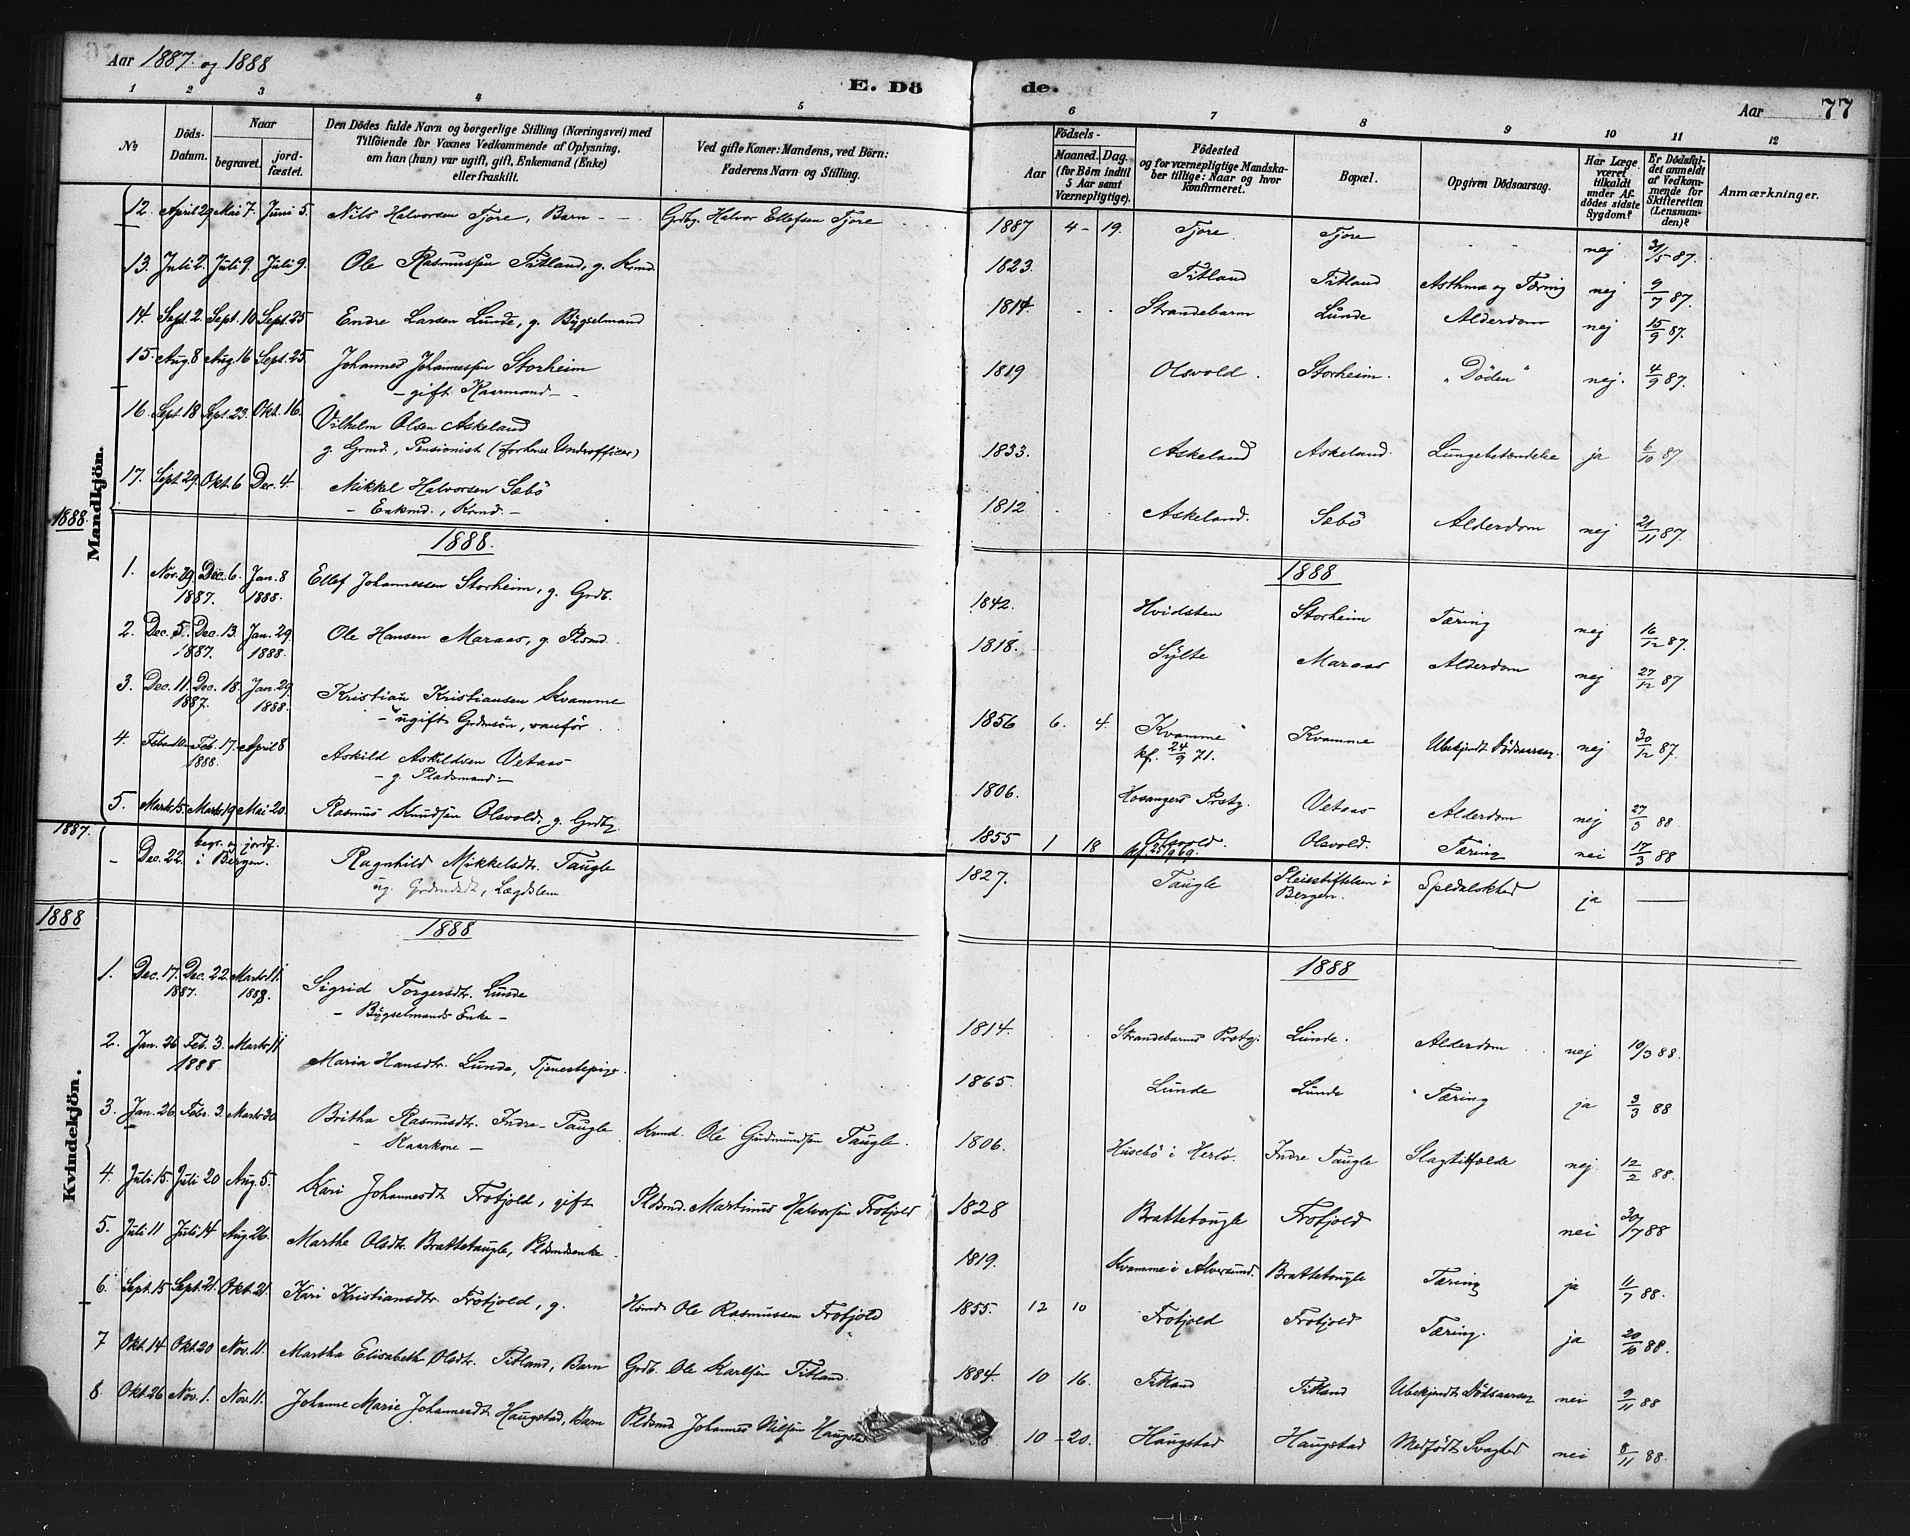 Aar 1887 og 1888
E. Döde.
Aar 77
1 2 3 4 5 6 7 8 9 10 11 12
No
Döds-Datum.
Naar
begravet.
jordfæstet.
Den Dödes fulde Navn og borgerlige Stilling (Næringsvei) med
Tilföiende for Voxnes Vedkommende af Oplysning,
om han (hun) var ugift, gift, Enkemand (Enke)
eller fraskilt.
Ved gifte Koner: Mandens, ved Börn:
Faderens Navn og Stilling.
Födsels-
Aar
Maaned. Dag.
(for Börn indtil
5 Aar samt
Værnepligtige).
Födested
og for værnepligtige Mandska-
ber tillige: Naar og hvor
konfirmeret.
Bopæl.
Opgiven Dödsaarsag.
Har Læge
været
tilkaldt
under Af-
dödes sidste
Sygdom?
Er Dödsfal-
det anmeldt
af Vedkom-
mende for
Skifteretten
(Lensman-
den)?
Anmærkninger.
Mandkjön.
12. April 29 Mai 7. Juni 5. Nils Halvorsen Tjore, Barn - - Grdbg. Halvor Ellefsen Tjore 1887 4 - 19. Tjore Tjore nej 31/5 87.
13. Juli 2. Juli 9. Juli 9. Ole Rasmussen Titland, g. Krmd. 1823. Titland Titland Asthma og Tæring nej 9/7 87.
14. Sept. 2. Sept. 10 Sept. 25 Endre Larsen Lunde, g. Bygselmand 1814. Strandebarm Lunde Alderdom nej 15/9 87.
15. Aug. 8 Aug. 16 Sept. 25. Johannes Johannessen Storheim 1819 Olsvold. Storheim. "Döden" nej. 4/9 87.
- gift Kaarmand -
16. Sept. 18 Sept. 23. Okt. 16. Vilhelm Olsen Askeland
g. Grmd., Pensionist (forhenv. Underofficer) 1833. Askeland Askeland. Lungebetændelse ja 6/10 87
17. Sept. 29. Okt. 6 Dec. 4. Mikkel Halvorsen Sæbö 1812 Askeland. Sæbö Alderdom nej 21/11 87.
- Enkmd., Krmd. -
1888.
1888. 1888
1. Nov. 29. Dec. 6. Jan. 8 Ellef Johannessen Storheim, g. Grdb. 1842. Hvidsten Storheim Tæring nej 16/12 87.
1887. 1888.
2. Dec. 5. Dec. 13. Jan. 29. Ole Hansen Maraas, g. Plsmd. 1818. Sylte Maraas Alderdom nej 27/12 87
1887. 1888.
3. Dec. 11. Dec. 18. Jan. 29. Kristian Kristiansen Kvamme 1856 6. 4. Kvamme Kvamme Ubekjendt Dödsaarsag nej 30/12 87
1887. 1888.
- ugift Grdmsön, vanför. kf. 24/9 71.
4. Feb. 17. April 8 Askild Askildsen Vetaas 1806. Hosangers Prstg. Vetaas Alderdom nej 27/3 88
1888. - g. Pladsmand. -
5. Marts 15. Marts 19 Mai 20. Rasmus Knudsen Olsvold, g. Grdbg 1855 1 18 Olsvold. Olsvold. Tæring nei 17/3 88
kf. 25/9 69.
1887.
- Dec. 22. begr. og jordf. i Bergen. Ragnhild Mikkelsdtr. Taugle 1827. Taugle Pleiestiftelsen i Bergen. Spedalskhed ja
ug. Grdmdsdt, Lægdslem
1888
1888 1888
Kvindekjön.
1. Dec. 17. Dec. 22. Marts 11. Sigrid Torgersdtr. Lunde 1814. Strandebarms Prstg. Lunde. Alderdom nej 10/3 88.
1887. 1888.
- Bygselmands Enke -
2. Jan. 26 Feb. 3. Marts 11 Maria Hansdtr. Lunde, Tjenestepige. 1865. Lunde Lunde Tæring ja 3/3 88
1888
3. Jan. 26. Febr. 3. Marts 30. Britha Rasmusdtr. Indre-Taugle Krmd. Ole Gudmundsen Taugle. 1806. Husebö i Herlö. Indre Taugle Slagtilfælde nej 12/2 88.
- Kaarkone -
4. Juli 15. Juli 20 Aug. 5. Kari Johannesdt Frotjold, gift Pldsmd. Martinus Halvorsen Frotjold 1828 Brattetaugle Frotjold nei 30/7 88
5. Juli 11 Juli 14 Aug. 26. Marthe Olsdtr. Brattetaugle, Pldsmdsenke. 1819. Kvamme i Alversund. Brattetaugle Tæring ja 11/7 88.
6. Sept. 15 Sept. 21. Okt. 21. Kari Kristiansdtr. Frotjold, g. Hsmd Ole Rasmussen Frotjold 1855. 12 10 Frotjold Frotjold Tæring. ja 20/10 88.
7 Okt. 14 Okt. 20 Nov. 11. Martha Elisabeth Olsdtr. Titland, Barn Grdb. Ole Karlsen Titland. 1884. 10 16. Titland Titland Ubekjendt Dödsaarsag nei 9/11 88
8. Okt. 26 Nov. 1. Nov. 11. Johanne Marie Johannesdt Haugstad, Barn Pldsmd Johannes Nilsen Haugstad 10 - 20. Haugstad Haugstad Medfödt Svaghed nei 8/11 88.